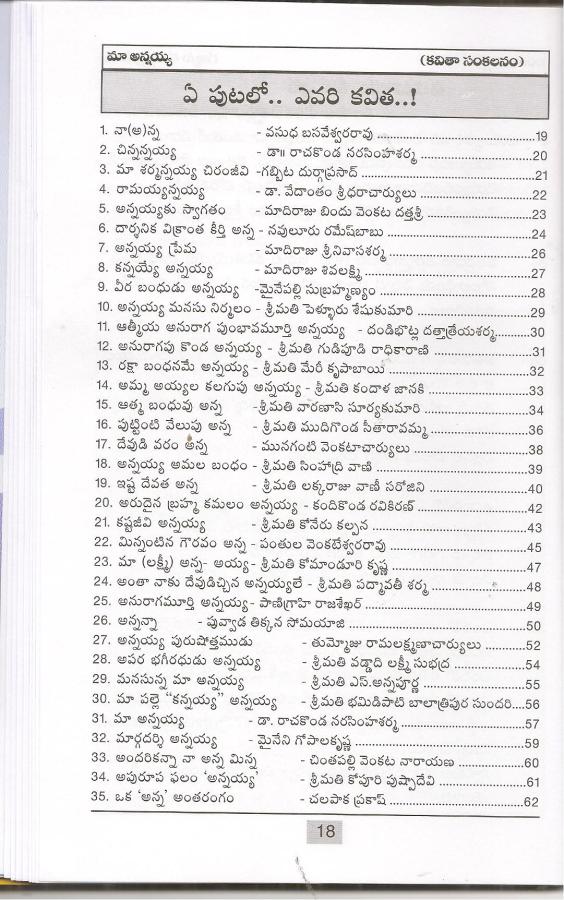 మా అన్నయ్య (కవితా సంకలనం)
ఏ పుటలో.. ఎవరి కవిత..!
1. నా(అ)న్న - వసుధ బసవేశ్వరరావు ........19
2. చిన్నన్నయ్య - డా॥ రాచకొండ నరసింహశర్మ ........20
3. మా శర్మన్నయ్య చిరంజీవి -గబ్బిట దుర్గాప్రసాద్ ........21
4. రామయ్యన్నయ్య - డా. వేదాంతం శ్రీధరాచార్యులు ........22
5. అన్నయ్యకు స్వాగతం - మాదిరాజు బిందు వెంకట దత్తశ్రీ ........23
6. దార్శనిక విక్రాంత కీర్తి అన్న - నవులూరు రమేష్‌బాబు ........24
7. అన్నయ్య ప్రేమ - మాదిరాజు శ్రీనివాసశర్మ ........26
8. కన్నయ్యే అన్నయ్య - మాదిరాజు శివలక్ష్మి ........27
9. వీర బంధుడు అన్నయ్య -మైనేపల్లి సుబ్రహ్మణ్యం ........28
10. అన్నయ్య మనసు నిర్మలం - శ్రీమతి పెళ్ళూరు శేషుకుమారి ........29
11. ఆత్మీయ అనురాగ పుంభావమూర్తి అన్నయ్య - దండిభొట్ల దత్తాత్రేయశర్మ ........30
12. అనురాగపు కొండ అన్నయ్య - శ్రీమతి గుడిపూడి రాధికారాణి ........31
13. రక్షా బంధనమే అన్నయ్య - శ్రీమతి మేరీ కృపాబాయి ........32
14. అమ్మ అయ్యల కలగుపు అన్నయ్య - శ్రీమతి కందాళ జానకి ........33
15. ఆత్మ బంధువు అన్న -శ్రీమతి వారణాసి సూర్యకుమారి ........34
16. పుట్టింటి వేలుపు అన్న - శ్రీమతి ముదిగొండ సీతారావమ్మ ........36
17. దేవుడి వరం అన్న - మునగంటి వెంకటాచార్యులు ........38
18. అన్నయ్య అమల బంధం - శ్రీమతి సింహాద్రి వాణి ........39
19. ఇష్ట దేవత అన్న - శ్రీమతి లక్కరాజు వాణీ సరోజిని ........40
20. అరుదైన బ్రహ్మ కమలం అన్నయ్య - కందికొండ రవికిరణ్ ........42
21. కష్టజీవి అన్నయ్య - శ్రీమతి కోనేరు కల్పన ........43
22. మిన్నంటిన గౌరవం అన్న - పంతుల వెంకటేశ్వరరావు ........45
23. మా (లక్ష్మీ) అన్న- అయ్య - శ్రీమతి కోమాండూరి కృష్ణ ........47
24. అంతా నాకు దేవుడిచ్చిన అన్నయ్యలే - శ్రీమతి పద్మావతీ శర్మ ........48
25. అనురాగమూర్తి అన్నయ్య - పాణిగ్రాహి రాజశేఖర్ ........49
26. అన్నన్నా - పువ్వాడ తిక్కన సోమయాజి ........50
27. అన్నయ్య పురుషోత్తముడు - తుమ్మోజు రామలక్ష్మణాచార్యులు ........52
28. అపర భగీరధుడు అన్నయ్య - శ్రీమతి వడ్డాది లక్ష్మీ సుభద్ర ........54
29. మనసున్న మా అన్నయ్య - శ్రీమతి ఎస్.అన్నపూర్ణ ........55
30. మా పల్లె "కన్నయ్య" అన్నయ్య - శ్రీమతి భమిడిపాటి బాలాత్రిపుర సుందరి...56
31. మా అన్నయ్య - డా. రాచకొండ నరసింహశర్మ ........57
32. మార్గదర్శి అన్నయ్య - మైనేని గోపాలకృష్ణ ........59
33. అందరికన్నా నా అన్న మిన్న - చింతపల్లి వెంకట నారాయణ ........60
34. అపురూప ఫలం 'అన్నయ్య' - శ్రీమతి కోపూరి పుష్పాదేవి ........61
35. ఒక 'అన్న' అంతరంగం - చలపాక ప్రకాష్ ........62
18